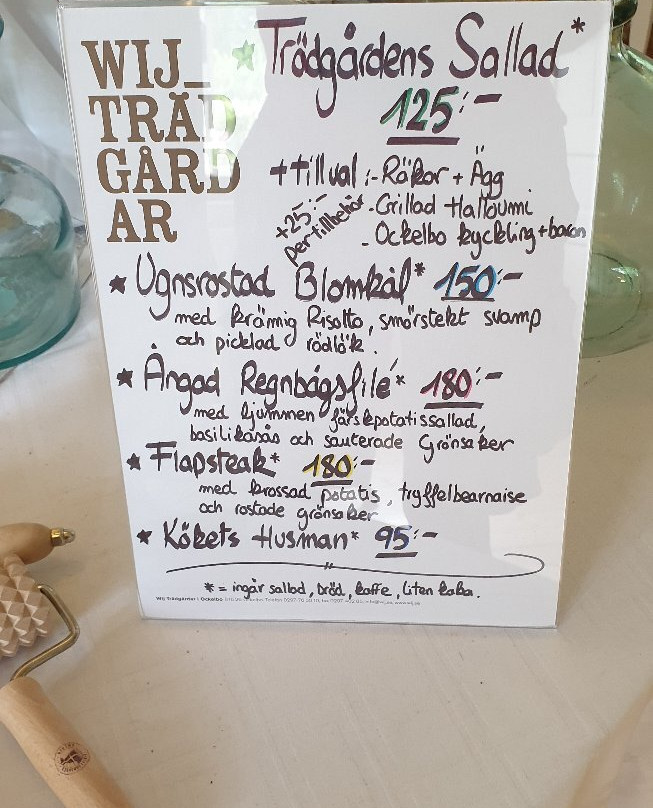 WIJ_
TRÄD
GÅRD
AR
Trädgårdens Sallad*
125:-
+tillval:-Räkor + Ägg
+25:-
per tillbehör
-Grillad Halloumi
-Ockelbo kyckling+bacon
* Ugnsrostad Blomkål* 150:-
med krämig Risotto, smörstekt svamp
och picklad rödlök.
* Ångad Regnbågsfilé* 180:-
med ljummen färskpotatissallad,
basilikasås och sauterade Grönsaker
* Flapsteak* 180:-
med krossad potatis, tryffelbearnaise
och rostade grönsaker
* Kökets Husman* 95:-
* = ingår sallad, bröd, kaffe, liten kaka.
Wij Trädgårdar i Ockelbo